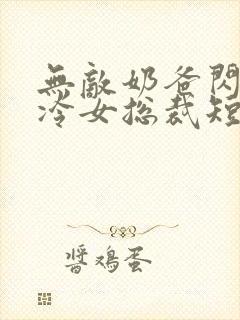 無敵奶爸閃
冷女总裁短
醬鸡蛋